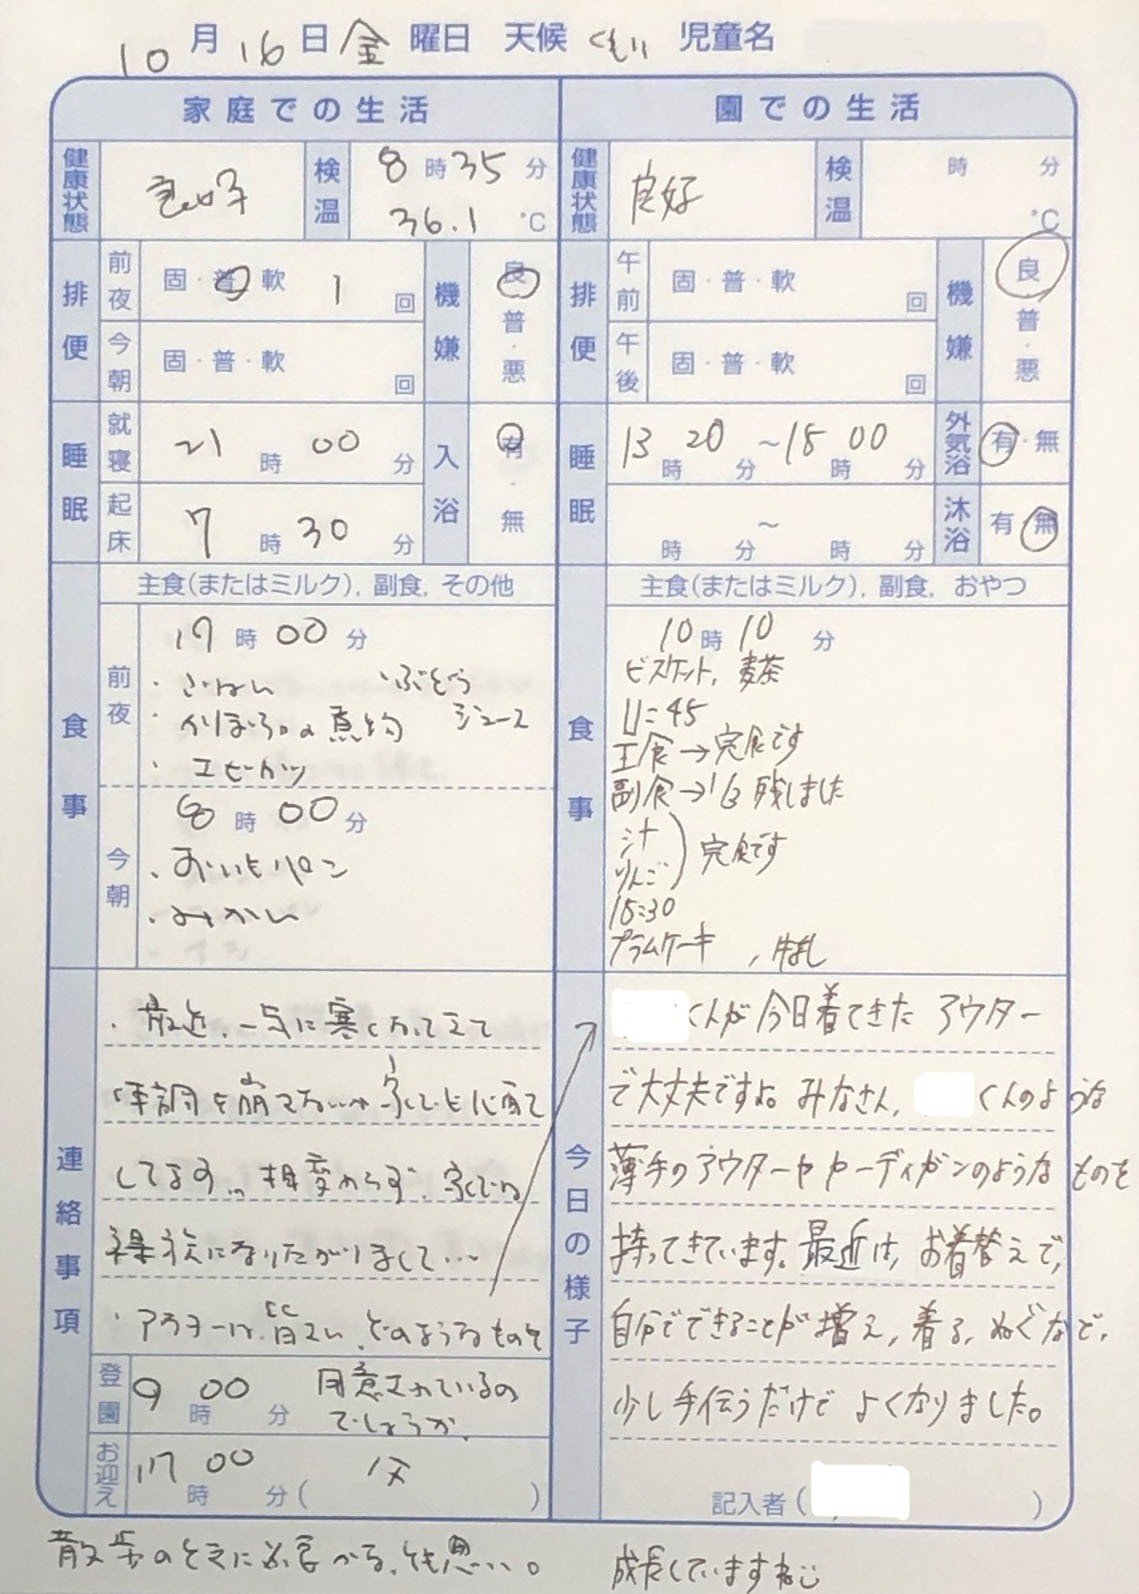 10月16日金曜日 天候 くもり 児童名
家庭での生活
健康状態 良好 検温 8時35分
36.1℃
排便 前夜 固・普・軟 1回 機嫌 良・普・悪
今朝 固・普・軟 回
睡眠 就寝 21時00分 入浴 有・無
起床 7時30分
食事 主食(またはミルク), 副食, その他
前夜 19時00分
・ごはん ・ぶどう
・かぼちゃの煮物 ジュース
・エビカツ
今朝 8時00分
・おいもパン
・みかん
連絡事項
・最近、一気に寒くなってきて
体調を崩さないか、家でも心配
してます… 相変わらず、家では
裸族になりたがりまして…
・アウターは、皆さん、どのようなものを
用意されているの
でしょうか。
登園 9時00分
お迎え 17時00分(父)
散歩のときに必要かな、とも思い。
園での生活
健康状態 良好 検温 時 分
℃
排便 午前 固・普・軟 回 機嫌 良・普・悪
午後 固・普・軟 回
睡眠 13時20分～15時00分 外気浴 有・無
時 分～ 時 分 沐浴 有・無
食事 主食(またはミルク), 副食, おやつ
10時10分
ビスケット, 麦茶
11:45
主食→完食です
副食→1/3残しました
汁
りんご
完食です
15:30
プラムケーキ, 牛乳
今日の様子
くんが今日着てきたアウター
で大丈夫ですよ。みなさん, くんのような
薄手のアウターやカーディガンのようなものを
持ってきています。最近は, お着替えで,
自分でできることが増え, 着る, ぬぐなど,
少し手伝うだけでよくなりました。
記入者( )
成長していますね